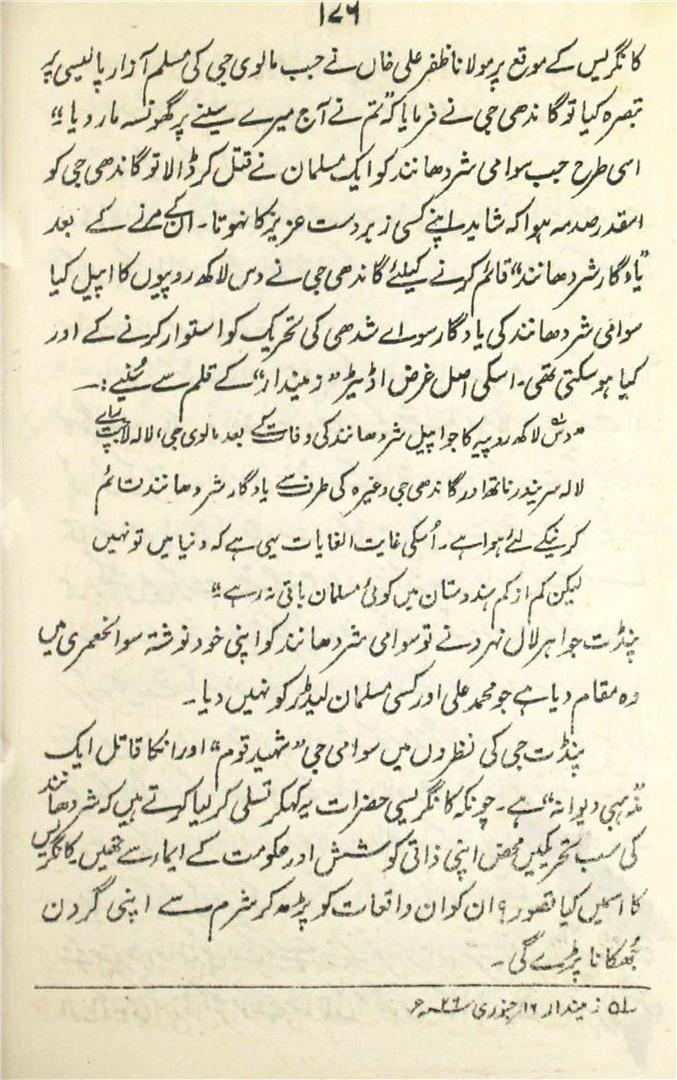 ۱۷۶
کانگریس کے موقع پر مولانا ظفر علی خاں نے جب مالوی جی کی مسلم آزار پالیسی پر
تبصرہ کیا تو گاندھی جی نے فرمایا کہ "تم نے آج میرے سینے پر گھونسہ مار دیا"
اسی طرح جب سوامی شردھانند کو ایک مسلمان نے قتل کر ڈالا تو گاندھی جی کو
اسقدر صدمہ ہوا کہ شاید اپنے کسی زبردست عزیز کا نہوتا۔ ان کے مرنے کے بعد
"یادگار شردھانند" قائم کرنے کیلئے گاندھی جی نے دس لاکھ روپیوں کا اپیل کیا
سوامی شردھانند کی یادگار سوائے شدھی کی تحریک کو استوار کرنے کے اور
کیا ہو سکتی تھی۔ اسکی اصل غرض اڈیٹر "زمیندار" کے قلم سے سُنیے :۔
"دس لاکھ روپیہ کا جو اپیل شردھانند کی وفات کے بعد مالوی جی، لالہ لاجپت رائے
لالہ سریندر ناتھ اور گاندھی جی وغیرہ کی طرف سے یادگار شردھانند قائم
کرنیکے لئے ہوا ہے۔ اُسکی غایت الغایات یہی ہے کہ دنیا میں تو نہیں
لیکن کم از کم ہندوستان میں کوئی مسلمان باقی نہ رہے"
پنڈت جواہر لال نہرو نے تو سوامی شردھانند کو اپنی خود نوشتہ سوانحعمری میں
وہ مقام دیا ہے جو محمد علی اور کسی مسلمان لیڈر کو نہیں دیا۔
پنڈت جی کی نظروں میں سوامی جی "شہید قوم" اور انکا قاتل ایک
"مذہبی دیوانہ" ہے۔ چونکہ کانگریسی حضرات یہ کہکر تسلی کر لیا کرتے ہیں کہ شردھانند
کی سب تحریکیں محض اپنی ذاتی کوشش اور حکومت کے ایماء سے تھیں۔ کانگریس
کا اسمیں کیا قصور؟ ان کو ان واقعات کو پڑھ کر شرم سے اپنی گردن
جُھکانا پڑے گی۔
لہ زمیندار ۱۶ جنوری ۲۶ء